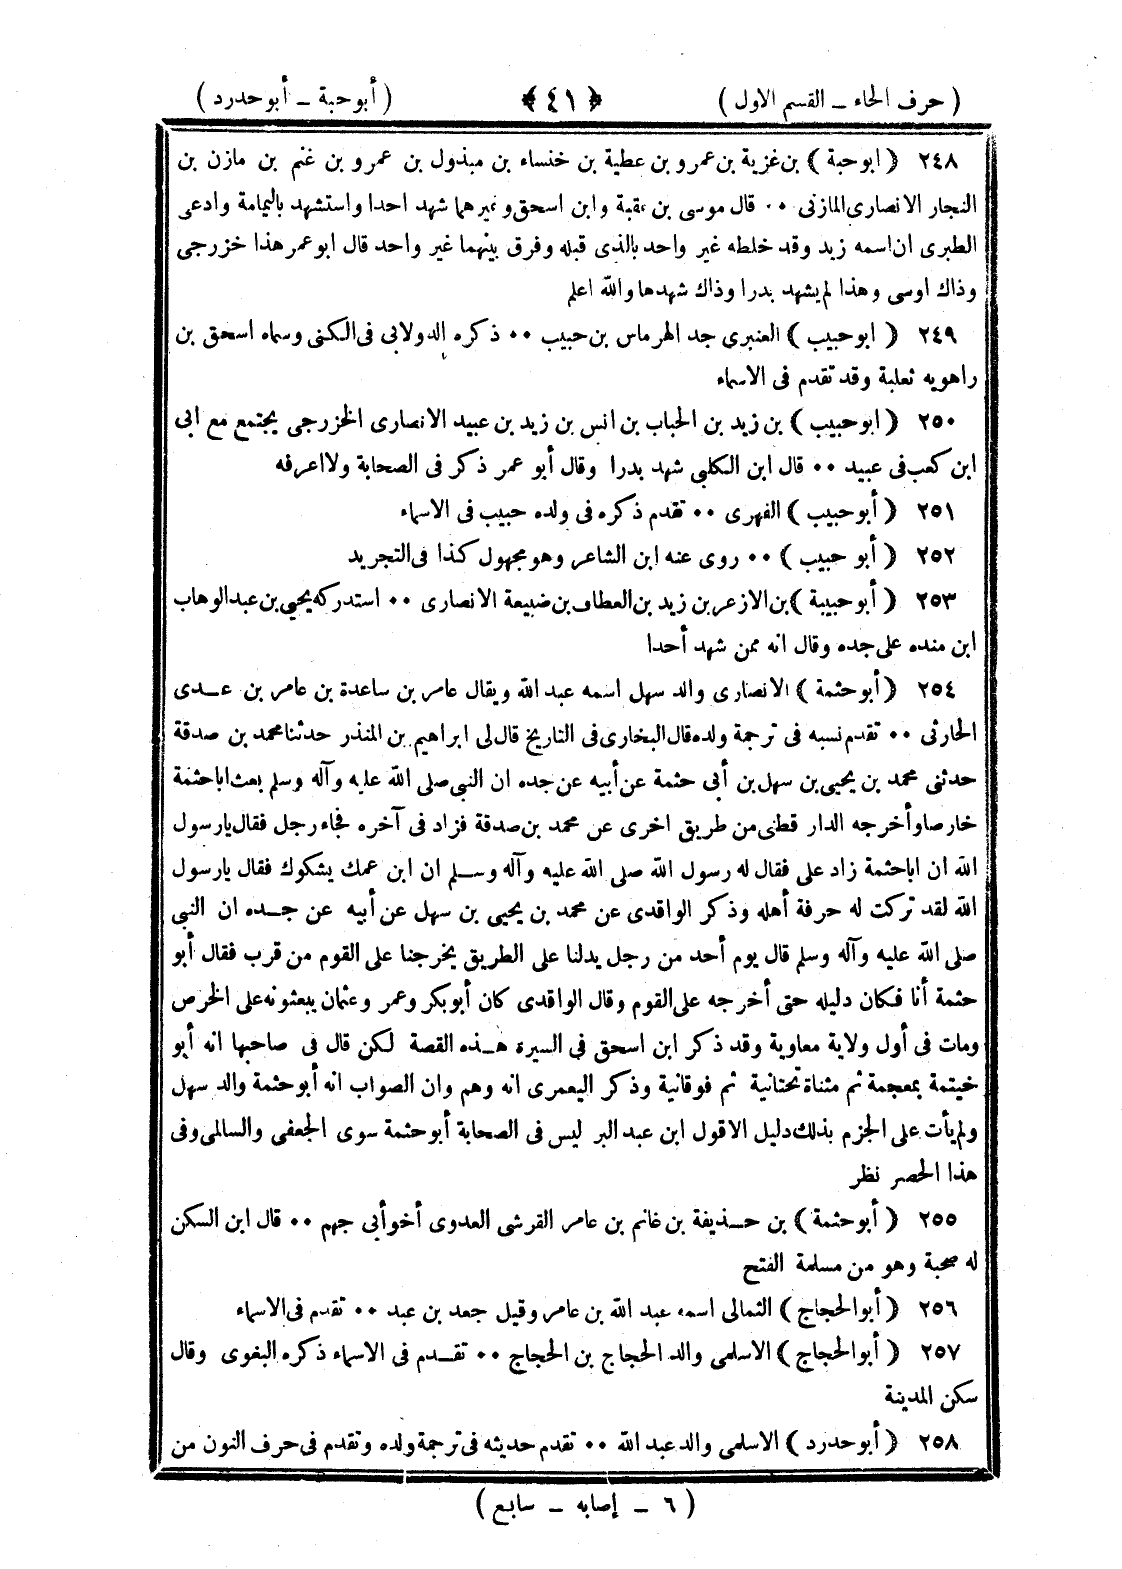 ( حرف الحاء ـ القسم الاول )
﴿ ٤١ ﴾
( أبوحبة ـ أبوحدرد )
٢٤٨ ( ابوحبة ) بن غزية بن عمرو بن عطية بن خنساء بن مبذول بن عمرو بن غنم بن مازن بن
النجار الانصارى المازنى ٠٠ قال موسى بن عقبة وابن اسحق وغيرهما شهد احدا واستشهد باليمامة وادعى
الطبرى ان اسمه زيد وقد خلطه غير واحد بالذى قبله وفرق بينهما غير واحد قال ابوعمر هذا خزرجى
وذاك اوسى وهذا لم يشهد بدرا وذاك شهدها والله اعلم
٢٤٩ ( ابوحبيب ) العنبرى جد الهرماس بن حبيب ٠٠ ذكره الدولابى فى الكنى وسماه اسحق بن
راهويه ثعلبة وقد تقدم فى الاسماء
٢٥٠ ( ابوحبيب ) بن زيد بن الحباب بن انس بن زيد بن عبيد الانصارى الخزرجى يجتمع مع ابى
ابن كعب فى عبيد ٠٠ قال ابن الكلبى شهد بدرا وقال أبو عمر ذكر فى الصحابة ولا اعرفه
٢٥١ ( أبوحبيب ) الفهرى ٠٠ تقدم ذكره فى ولده حبيب فى الاسماء
٢٥٢ ( أبو حبيب ) ٠٠ روى عنه ابن الشاعر وهو مجهول كذا فى التجريد
٢٥٣ ( أبوحبيبة ) بن الازعر بن زيد بن العطاف بن ضبيعة الانصارى ٠٠ استدركه يحيى بن عبد الوهاب
ابن منده على جده وقال انه ممن شهد أحدا
٢٥٤ ( أبوحثمة ) الانصارى والد سهل اسمه عبد الله ويقال عامر بن ساعدة بن عامر بن عــدى
الحارثى ٠٠ تقدم نسبه فى ترجمة ولده قال البخارى فى التاريخ قال لى ابراهيم بن المنذر حدثنا محمد بن صدقة
حدثنى محمد بن يحيى بن سهل بن أبى حثمة عن أبيه عن جده ان النبى صلى الله عليه وآله وسلم بعث اباحثمة
خارصا وأخرجه الدار قطنى من طريق اخرى عن محمد بن صدقة فزاد فى آخره فجاء رجل فقال يارسول
الله ان اباحثمة زاد على فقال له رسول الله صلى الله عليه وآله وســلم ان ابن عمك يشكوك فقال يارسول
الله لقد تركت له حرفة أهله وذكر الواقدى عن محمد بن يحيى بن سهل عن أبيه عن جــده ان النبى
صلى الله عليه وآله وسلم قال يوم أحد من رجل يدلنا على الطريق يخرجنا على القوم من قرب فقال أبو
حثمة أنا فكان دليله حتى أخرجه على القوم وقال الواقدى كان أبوبكر وعمر وعثمان يبعثونه على الخرص
ومات فى أول ولاية معاوية وقد ذكر ابن اسحق فى السيرة هــذه القصة لكن قال فى صاحبها انه أبو
خيتمة بمعجمة ثم مثناة تحتانية ثم فوقانية وذكر اليعمرى انه وهم وان الصواب انه أبوحثمة والد سهل
ولم يأت على الجزم بذلك دليل الاقول ابن عبد البر ليس فى الصحابة أبوحثمة سوى الجعفى والسالمى وفى
هذا الحصر نظر
٢٥٥ ( أبوحثمة ) بن حــذيفة بن غانم بن عامر القرشى العدوى أخو أبى جهم ٠٠ قال ابن السكن
له صحبة وهو من مسلمة الفتح
٢٥٦ ( أبوالحجاج ) الثمالى اسمه عبد الله بن عامر وقيل جعد بن عبد ٠٠ تقدم فى الاسماء
٢٥٧ ( أبوالحجاج ) الاسلمى والد الحجاج بن الحجاج ٠٠ تقــدم فى الاسماء ذكره البغوى وقال
سكن المدينة
٢٥٨ ( أبوحدرد ) الاسلمى والد عبد الله ٠٠ تقدم حديثه فى ترجمة ولده وتقدم فى حرف النون من
( ٦ ـ إصابه ـ سابع )